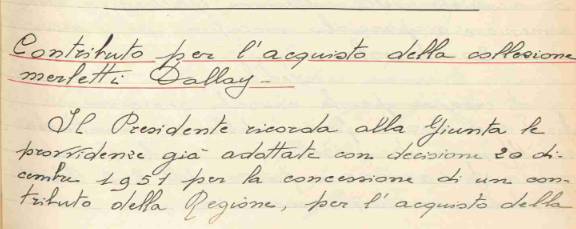 Contributo per l'acquisto della collezione
merletti Dallay -
Il Presidente ricorda alla Giunta le
provvidenze già adottate con decisione 20 di-
cembre 1951 per la concessione di un con-
tributo della Regione, per l'acquisto della